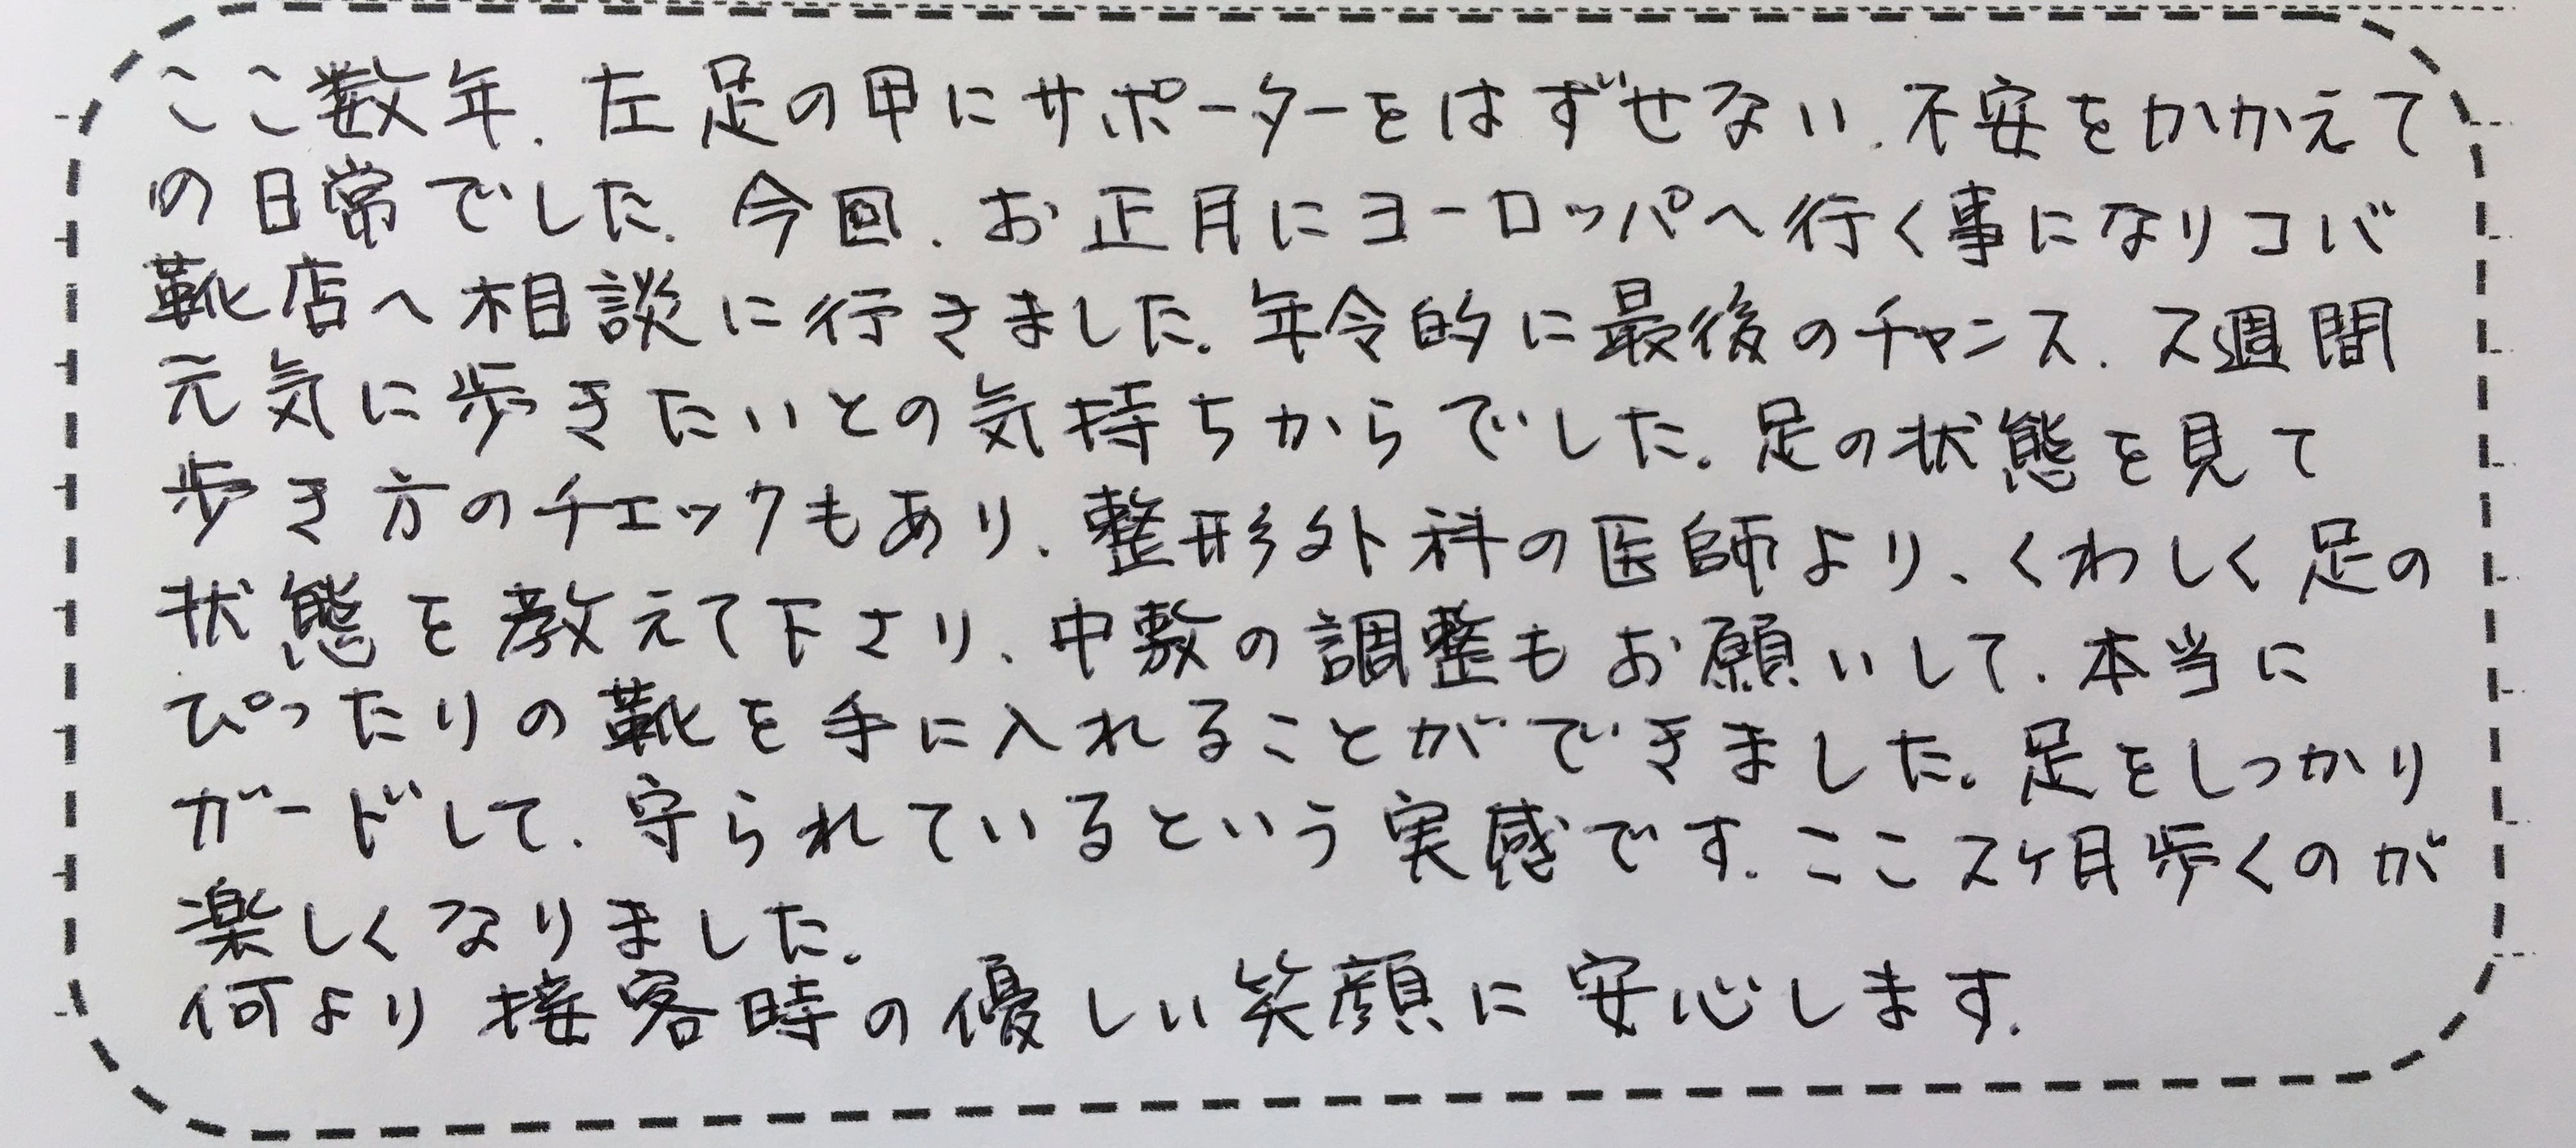 ここ数年、左足の甲にサポーターをはずせない、不安をかかえて
の日常でした。今回、お正月にヨーロッパへ行く事になりコバ
靴店へ相談に行きました。年令的に最後のチャンス、2週間
元気に歩きたいとの気持ちからでした。足の状態を見て
歩き方のチェックもあり、整形外科の医師より、くわしく足の
状態を教えて下さり、中敷の調整もお願いして、本当に
ぴったりの靴を手に入れることができました。足をしっかり
ガードして、守られているという実感です。ここ2ヶ月歩くのが
楽しくなりました。
何より接客時の優しい笑顔に安心します。